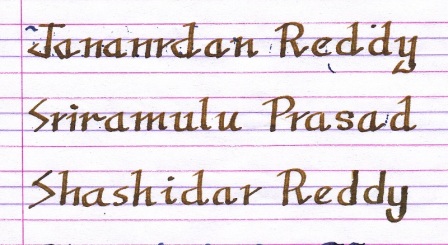 Jananrdan Reddy
Sriramulu Prasad
Shashidar Reddy